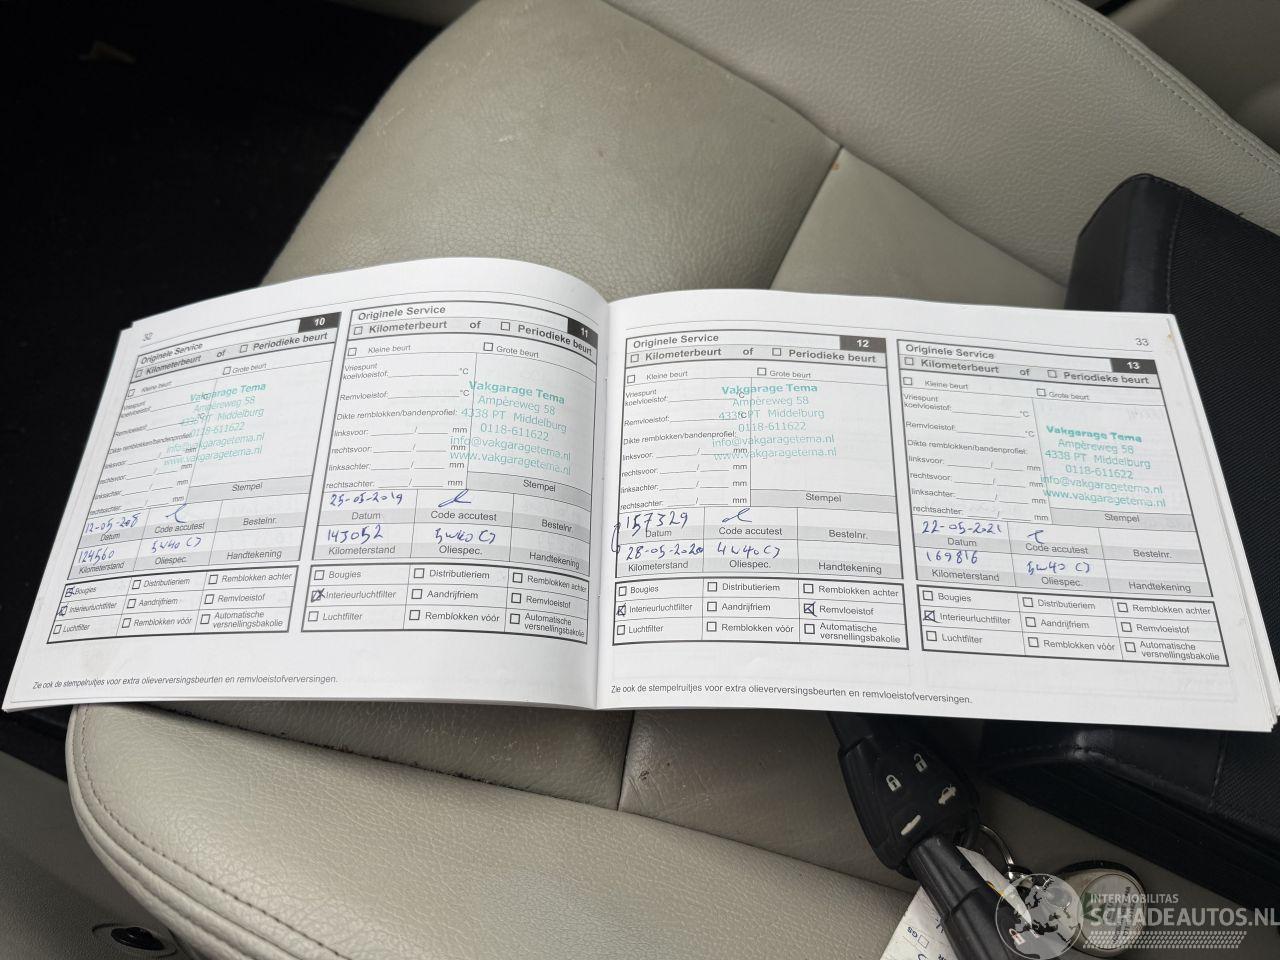 32
10
Originele Service
Kilometerbeurt of Periodieke beurt
Kleine beurt
Vriespunt
koelvloeistof:
Remvloeistof:
Dikte remblokken/bandenprofiel:
linksvoor: / mm
rechtsvoor: / mm
linksachter: / mm
rechtsachter: / mm
Vakgarage Tema
Ampèreweg 58
4338 PT Middelburg
0118-611622
info@vakgaragetema.nl
www.vakgaragetema.nl
Stempel
12-05-208
Datum Code accutest Bestelnr.
124560 5w40 C3
Kilometerstand Oliespec. Handtekening
Bougies Distributieriem Remblokken achter
Interieurluchtfilter Aandrijfriem Remvloeistof
Luchtfilter Remblokken vóór Automatische
versnellingsbakolie
11
Originele Service
Kilometerbeurt of Periodieke beurt
Kleine beurt Grote beurt
Vriespunt
koelvloeistof: °C
Remvloeistof: °C
Dikte remblokken/bandenprofiel:
linksvoor: / mm
rechtsvoor: / mm
linksachter: / mm
rechtsachter: / mm
Vakgarage Tema
Ampèreweg 58
4338 PT Middelburg
0118-611622
info@vakgaragetema.nl
www.vakgaragetema.nl
Stempel
25-05-2019
Datum Code accutest Bestelnr.
143052 5w40 C3
Kilometerstand Oliespec. Handtekening
Bougies Distributieriem Remblokken achter
Interieurluchtfilter Aandrijfriem Remvloeistof
Luchtfilter Remblokken vóór Automatische
versnellingsbakolie
Zie ook de stempelruitjes voor extra olieverversingsbeurten en remvloeistofverversingen.
33
12
Originele Service
Kilometerbeurt of Periodieke beurt
Kleine beurt Grote beurt
Vriespunt
koelvloeistof: °C
Remvloeistof: °C
Dikte remblokken/bandenprofiel:
linksvoor: / mm
rechtsvoor: / mm
linksachter: / mm
rechtsachter: / mm
Vakgarage Tema
Ampèreweg 58
4338 PT Middelburg
0118-611622
info@vakgaragetema.nl
www.vakgaragetema.nl
Stempel
157329
Datum Code accutest Bestelnr.
28-05-2020 4w40 C3
Kilometerstand Oliespec. Handtekening
Bougies Distributieriem Remblokken achter
Interieurluchtfilter Aandrijfriem Remvloeistof
Luchtfilter Remblokken vóór Automatische
versnellingsbakolie
13
Originele Service
Kilometerbeurt of Periodieke beurt
Kleine beurt Grote beurt
Vriespunt
koelvloeistof: °C
Remvloeistof: °C
Dikte remblokken/bandenprofiel:
linksvoor: / mm
rechtsvoor: / mm
linksachter: / mm
rechtsachter: / mm
Vakgarage Tema
Ampèreweg 58
4338 PT Middelburg
0118-611622
info@vakgaragetema.nl
www.vakgaragetema.nl
Stempel
22-05-2021
Datum Code accutest Bestelnr.
169816 5w40 C3
Kilometerstand Oliespec. Handtekening
Bougies Distributieriem Remblokken achter
Interieurluchtfilter Aandrijfriem Remvloeistof
Luchtfilter Remblokken vóór Automatische
versnellingsbakolie
Zie ook de stempelruitjes voor extra olieverversingsbeurten en remvloeistofverversingen.
INTERMOBILITAS
SCHADEAUTOS.NL